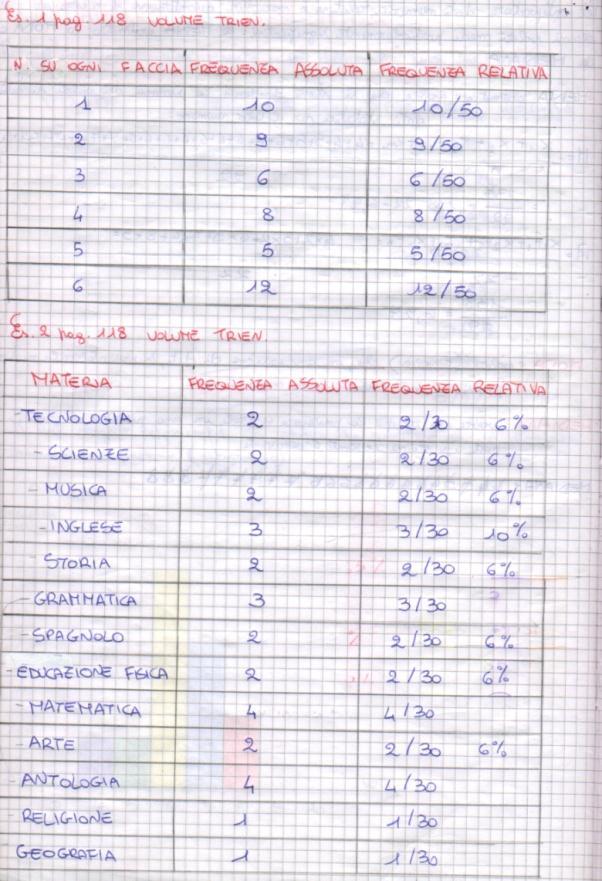 Es. 1 pag. 118 VOLUME TRIEN.
N. SU OGNI FACCIA FREQUENZA ASSOLUTA FREQUENZA RELATIVA
1 10 10/50
2 9 9/50
3 6 6/50
4 8 8/50
5 5 5/50
6 12 12/50
Es. 2 pag. 118 VOLUME TRIEN.
MATERIA FREQUENZA ASSOLUTA FREQUENZA RELATIVA
-TECNOLOGIA 2 2/30 6%
-SCIENZE 2 2/30 6%
-MUSICA 2 2/30 6%
-INGLESE 3 3/30 10%
-STORIA 2 2/30 6%
-GRAMMATICA 3 3/30
-SPAGNOLO 2 2/30 6%
-EDUCAZIONE FISICA 2 2/30 6%
-MATEMATICA 4 4/30
-ARTE 2 2/30 6%
-ANTOLOGIA 4 4/30
-RELIGIONE 1 1/30
-GEOGRAFIA 1 1/30